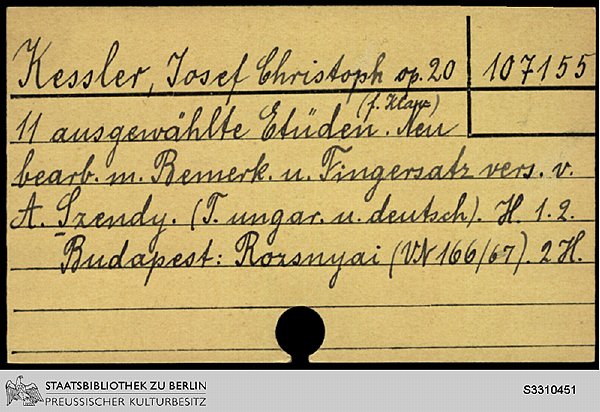 Kessler, Josef Christoph op. 20 107155
(f. Klav.)
11 ausgewählte Etüden. Neu
bearb. m. Bemerk. u. Fingersatz vers. v.
A. Szendy. (T. ungar. u. deutsch). H. 1. 2.
Budapest: Rozsnyai (VN 166/67). 2 H.
STAATSBIBLIOTHEK ZU BERLIN
PREUSSISCHER KULTURBESITZ
S3310451